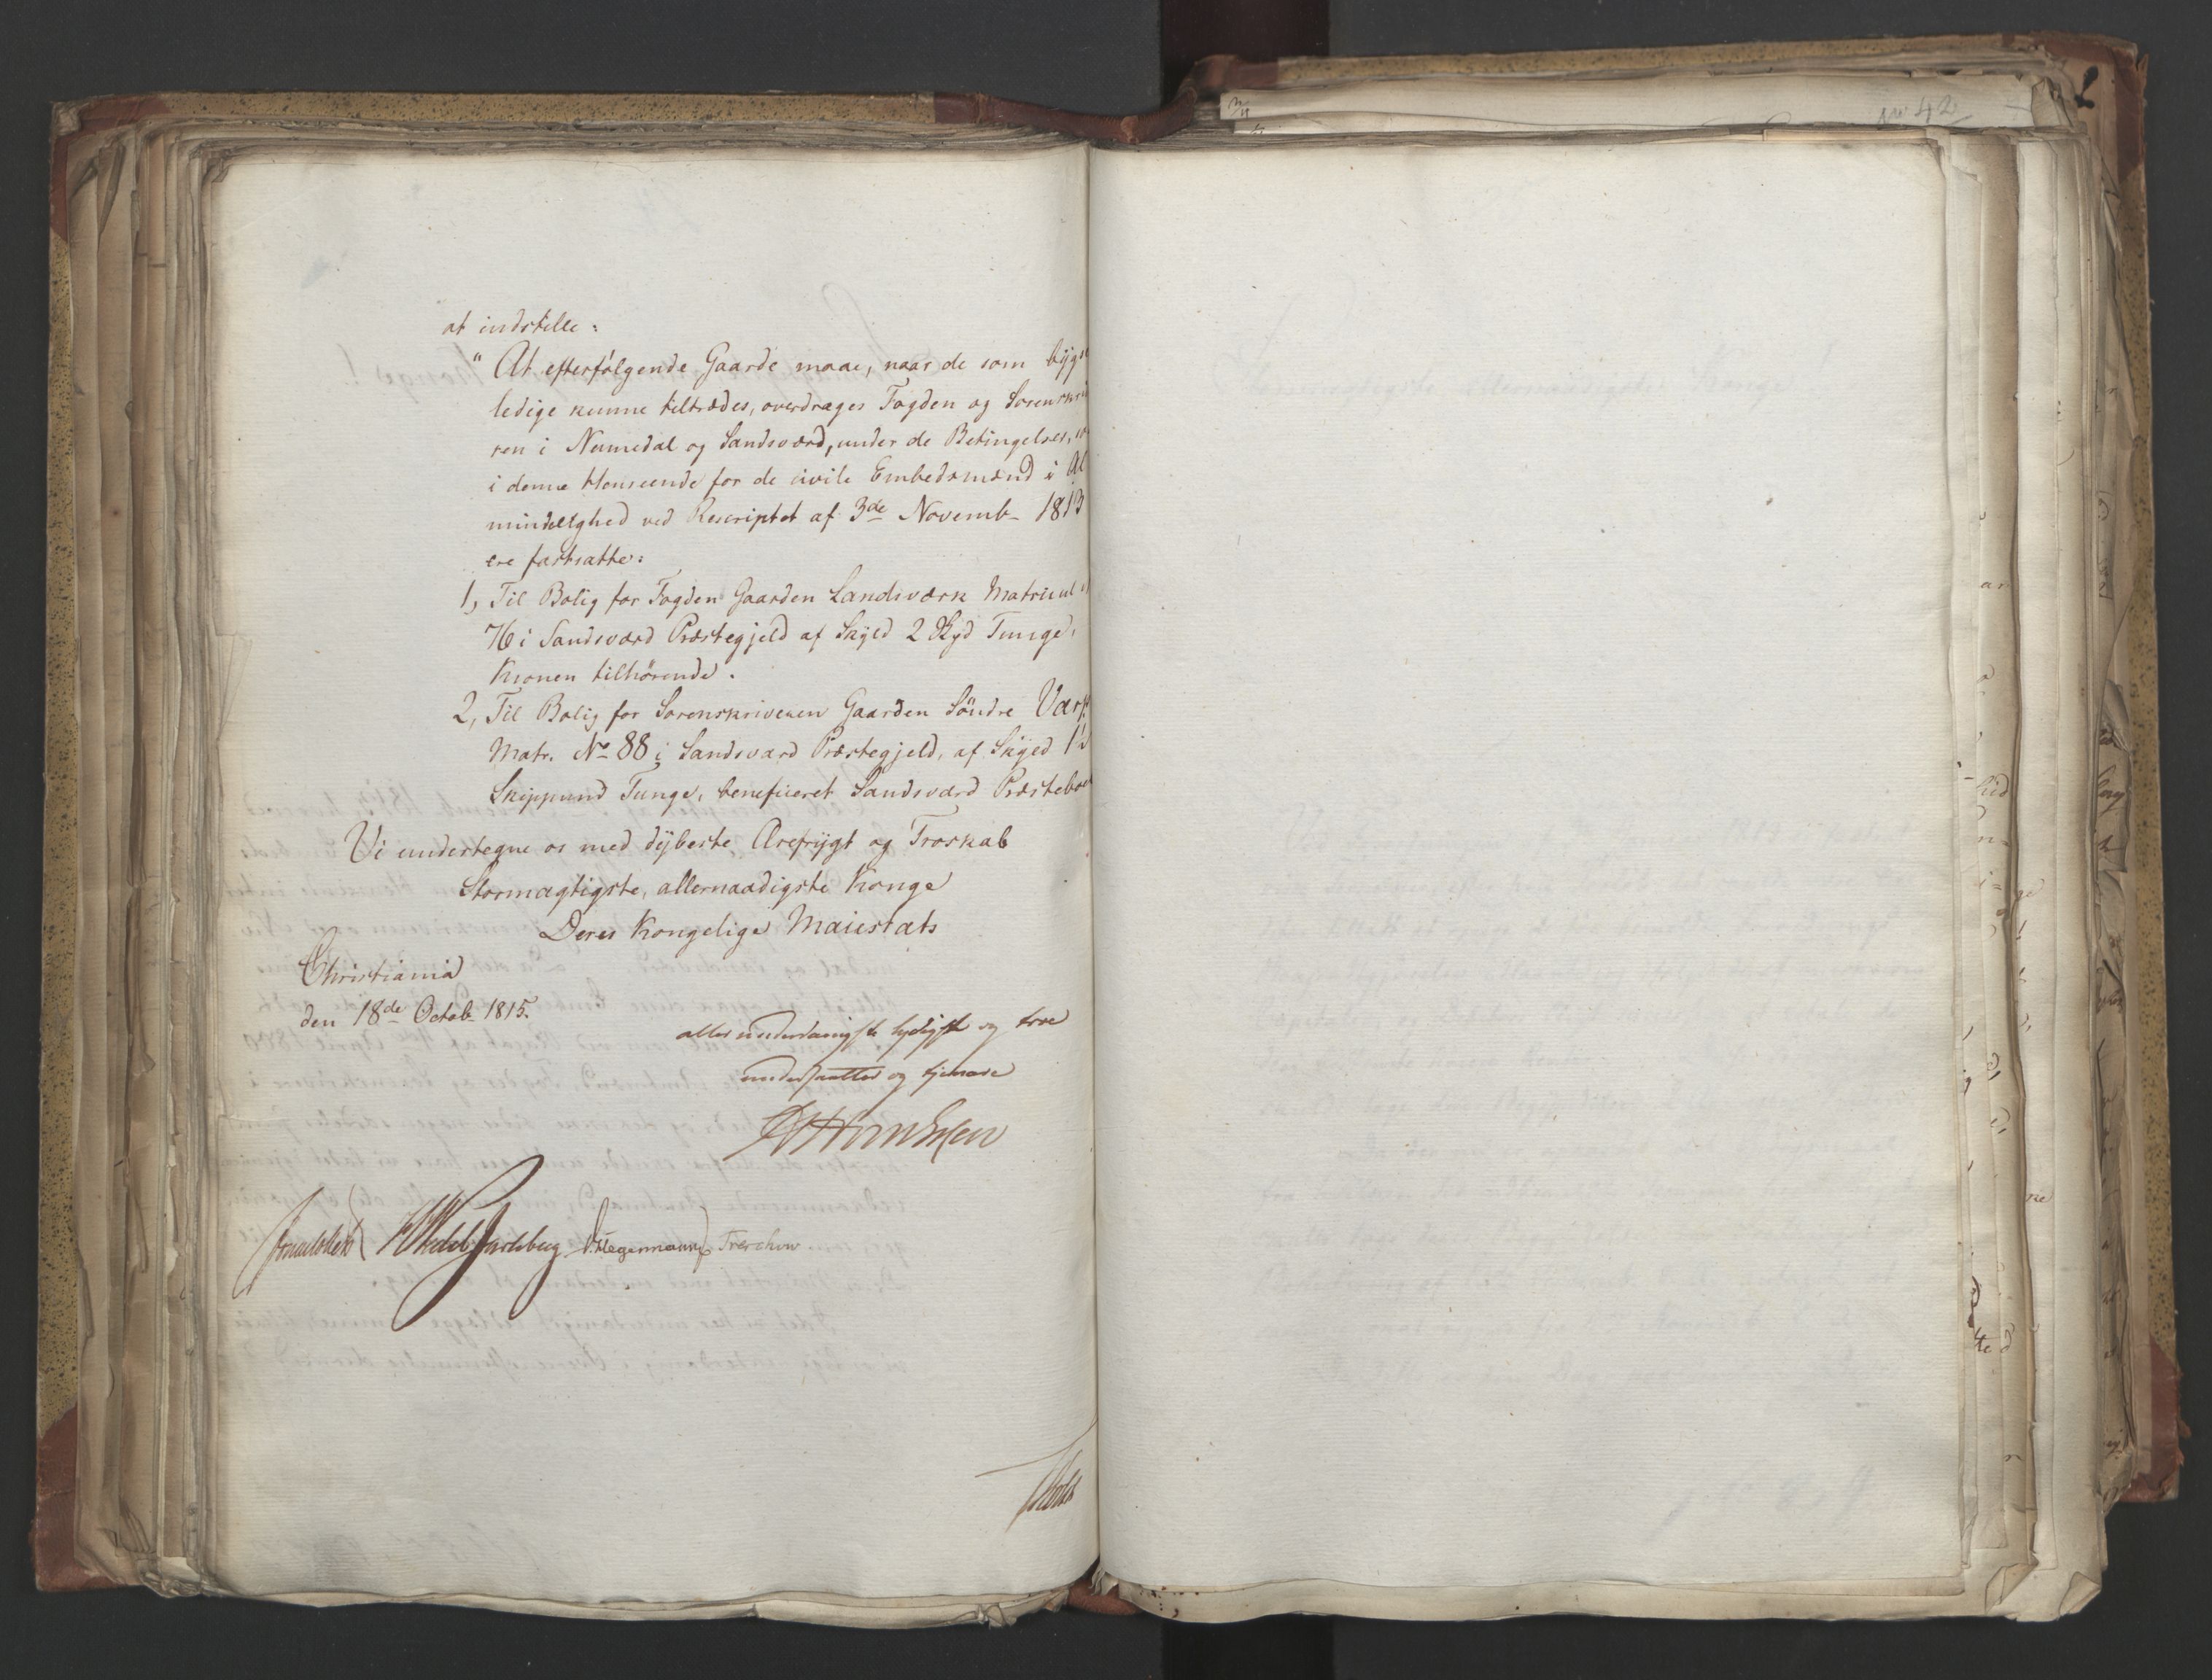 No 42
at indstille:
" At efterfølgende Gaarde maae, naar de som byg
ledige kunne tiltrædes, overdrages Fogden og Sorenskri
ren i Numedal og Sandsværd, under de Betingelser,
i denne Henseende for de civile Embedsmænd i Al
mindelighed ved Rescriptet af 3de Novemb- 1813
ere fastsatte:
1, Til Bolig for Fogden Gaarden Landsværk Matricul
76 i Sandsværd Præstegjeld af Skyld 2 Skpd Tunge,
Kronen tilhørende.
2, Til Bolig for Sorenskriveren Gaarden Søndre
Matr. No 88 i Sandsværd Præstegjeld, af Skyld
Skippund Tunge, beneficeret Sandsværd Præstebo
Vi undertegne os med dybeste Ærefrygt og Troskab
Stormægtigste, allernaadigste Konge
Deres Kongelige Maiestæts
Christiania
den 18de Octob- 1815.
allerunderdanigste lydigste og troe
undersaatter og tjenere
Sommerhielm
Wedel Jarlsberg D. Hegermann Treschow